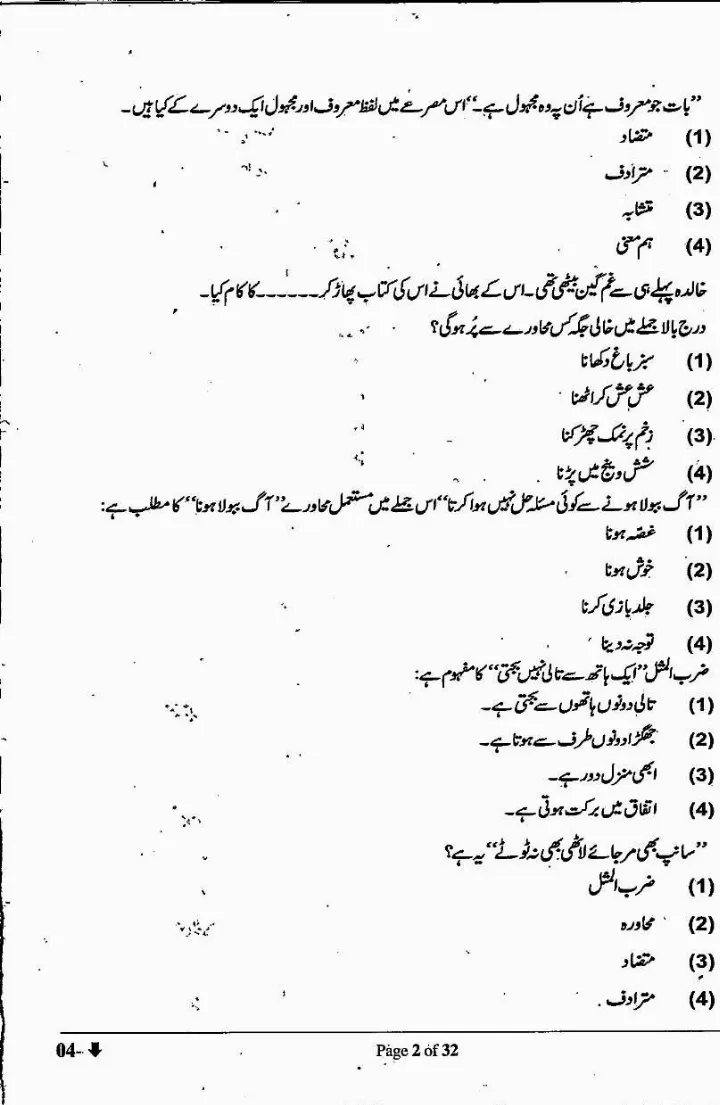 ”بات جو معروف ہے اُن پہ وہ مجہول ہے۔“ اس مصرعے میں لفظ معروف اور مجہول ایک دوسرے کے کیا ہیں۔
(1) متضاد
(2) مترادف
(3) متشابہ
(4) ہم معنی
خالدہ پہلے ہی سے غم گین بیٹھی تھی۔ اس کے بھائی نے اس کی کتاب پھاڑ کر ------ کا کام کیا۔
درج بالا جملے میں خالی جگہ کس محاورے سے پُر ہوگی؟
(1) سبز باغ دکھانا
(2) عش عش کر اٹھنا
(3) زخم پر نمک چھڑکنا
(4) شش و پنج میں پڑنا
”آگ ببولا ہونے سے کوئی مسئلہ حل نہیں ہوا کرتا“ اس جملے میں مستعمل محاورے ”آگ ببولا ہونا“ کا مطلب ہے:
(1) غصّہ ہونا
(2) خوش ہونا
(3) جلد بازی کرنا
(4) توجہ نہ دینا
ضرب المثل ”ایک ہاتھ سے تالی نہیں بجتی“ کا مفہوم ہے:
(1) تالی دونوں ہاتھوں سے بجتی ہے۔
(2) جھگڑا دونوں طرف سے ہوتا ہے۔
(3) ابھی منزل دور ہے۔
(4) اتفاق میں برکت ہوتی ہے۔
”سانپ بھی مر جائے لاٹھی بھی نہ ٹوٹے“ یہ ہے؟
(1) ضرب المثل
(2) محاورہ
(3) متضاد
(4) مترادف
04- Page 2 of 32